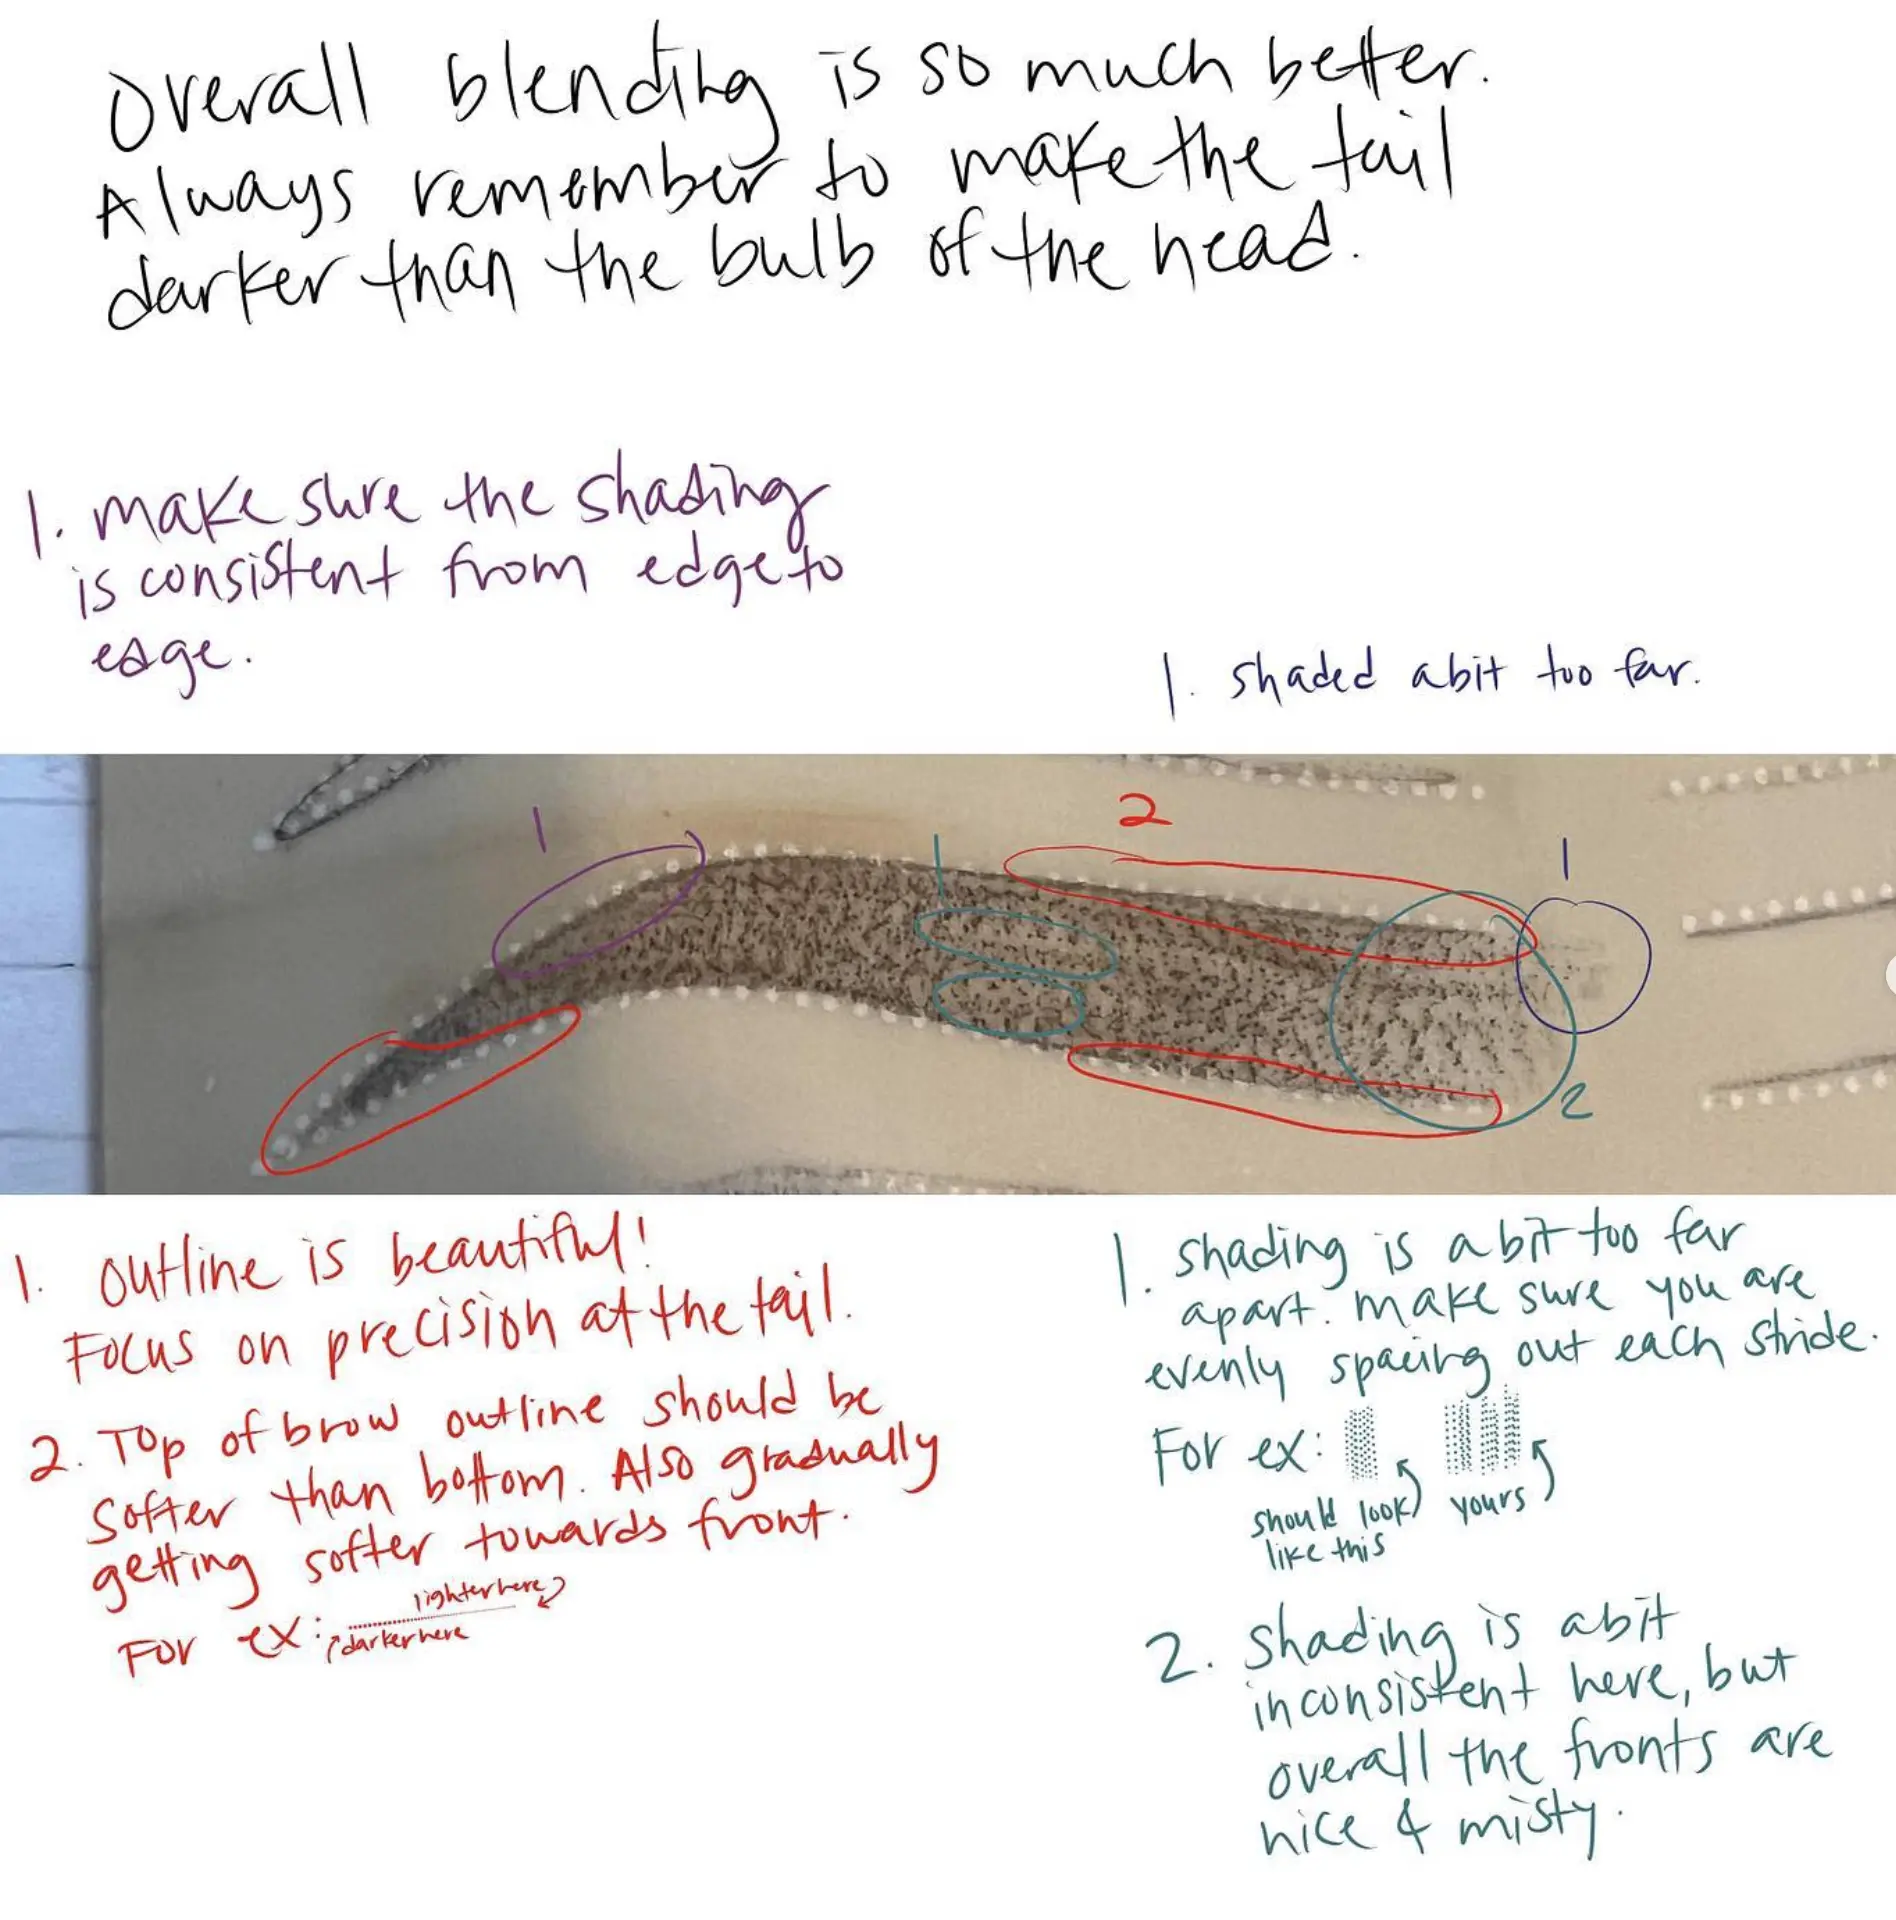 Overall blending is so much better.
Always remember to make the tail
darker than the bulb of the head.
1. make sure the shading
is consistent from edge to
edge.
1. shaded a bit too far.
1
2
1
1
2
1. Outline is beautiful!
Focus on precision at the tail.
2. Top of brow outline should be
softer than bottom. Also gradually
getting softer towards front.
For ex:
lighter here
darker here
1. Shading is a bit too far
apart. make sure you are
evenly spacing out each stride.
For ex:
should look
like this
yours
2. Shading is a bit
inconsistent here, but
overall the fronts are
nice & misty.